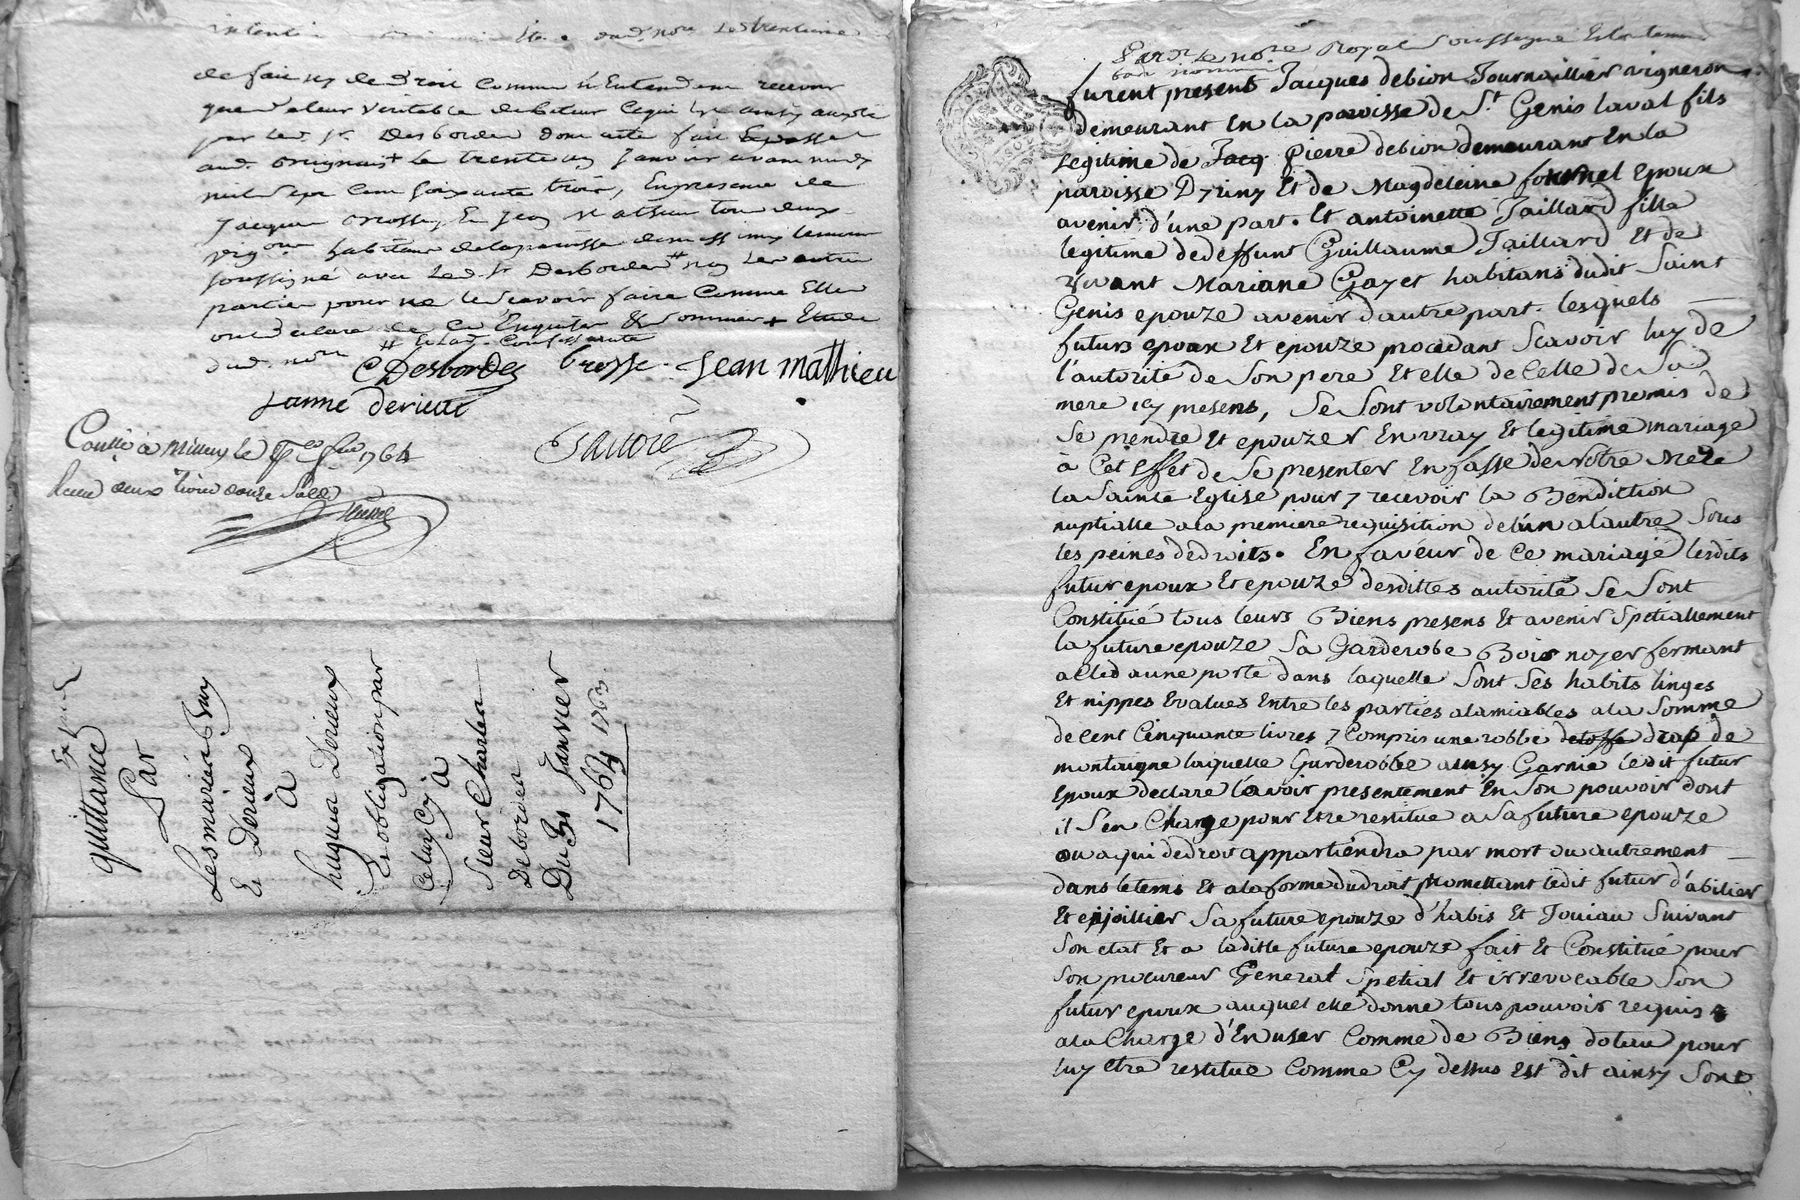 de fait ny de Droit comme n'Entendant recevoir
que valeur veritable debiteur Ce qui
par led. Sr. Desbordes dont acte fait &
aud. le trente un Janvier avant midy
mil sept cent soixante trois, En presence de
Jacques Brosse, & Jean Mathieu tous deux
vig.ons habitans de la paroisse de
soussigné avec led. Sr Desbordes non les autres
parties pour ne le scavoir faire Comme Elles
ont declaré de ce Enquises & Sommés + Etude
dud. no.re
CDesbordes brosse. Jean mathieu
janne derieux
à le 1764
Receu deux livres douze Sols
quittance
Par
Les mariés
Et Derieux
à
hugues Derieux
Et obligation par
Celuy Cy à
Sieur Charles
Desbordes
Du 31 Janvier
1763
Pard.t le no.re Royal Soussigné
furent presents Jacques debion Journaillier vigneron
demeurant En la paroisse de St Genis laval fils
legitime de Pierre debion demeurant En la
paroisse D'yriny Et de Magdeleine fournel Epoux
avenir d'une part. Et antoinette Taillard fille
legitime de deffunt Guillaume Taillard Et de
vivant Mariane Gayet habitans dudit Saint
Genis epouze avenir d'autre part. lesquels
futurs epoux Et epouze procedant Scavoir luy de
l'autorité de Son pere Et elle de Celle de Sa
mere icy presens, Se Sont volontairement promis de
Se prendre Et epouzer En vray Et legitime mariage
à Cet Effet de Se presenter En fasse de Notre Mere
la Sainte Eglise pour y recevoir la Bendiction
nuptialle a la premiere requisition de l'un a l'autre Sous
les peines de droits. En faveur de Ce mariage lesdits
futur epoux Et epouze desdittes autorité Se Sont
Constitué tous leurs Biens presens Et avenir Spetiallement
la future epouze Sa Garderobe Bois noyer fermant
a Cled a une porte dans laquelle Sont Ses habits linges
Et nippes Evalués Entre les parties alamiables a la Somme
de Cent Cinquante livres y Compris une robbe detoffe drap de
montaigne laquelle Gurderobbe ainsy Garnie ledit futur
Epoux declare l'avoir presentement En Son pouvoir dont
il S'en Charge pour Etre restitué a Sa future epouze
ou a qui de droit appartiendra par mort ou autrement
dans le tems Et a la forme du droit Promettant ledit futur d'abilier
Et enjoillier Sa future epouze d'habis Et Joiiau Suivant
Son etat Et a laditte future epouze fait Et Constitué pour
Son procureur General Spetial Et irrevocable Son
futur epoux auquel elle donne tous pouvoir requis
a la Charge d'En user Comme de Biens dotau pour
luy etre restitué Comme Cy dessus Est dit ainsy Sont